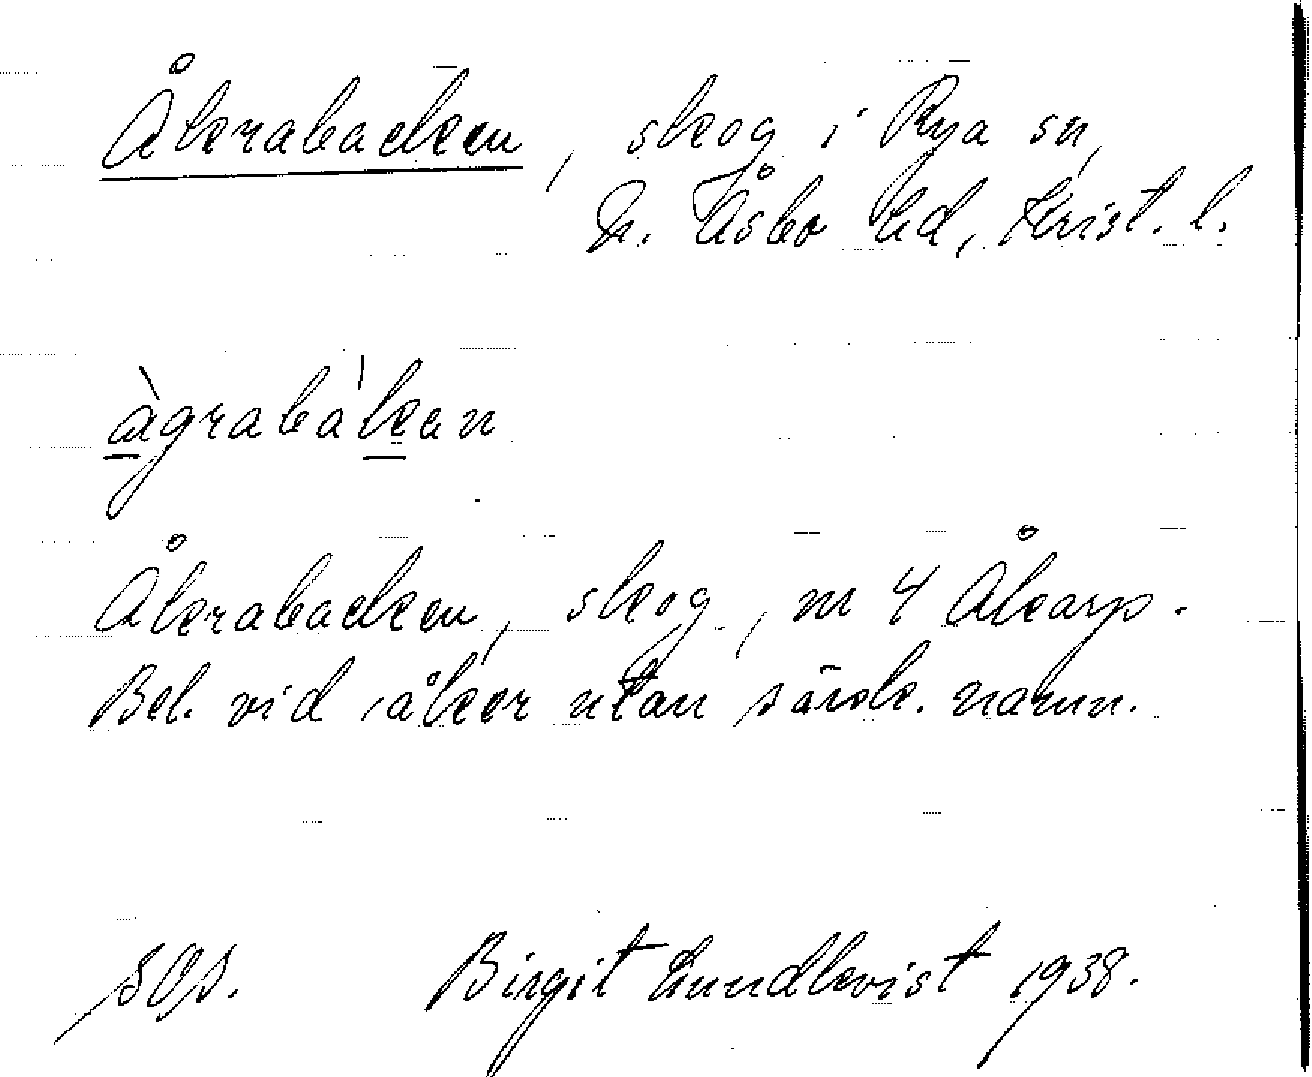 Åkrabacken, skog i Rya sn,
N. Åsbo hd, Krist. l.
àgrabaˈkan
Åkrabacken, skog, nr 4 Åkarp.
Bel. vid åker utan särsk. namn.
Birgit Lundkvist 1938.